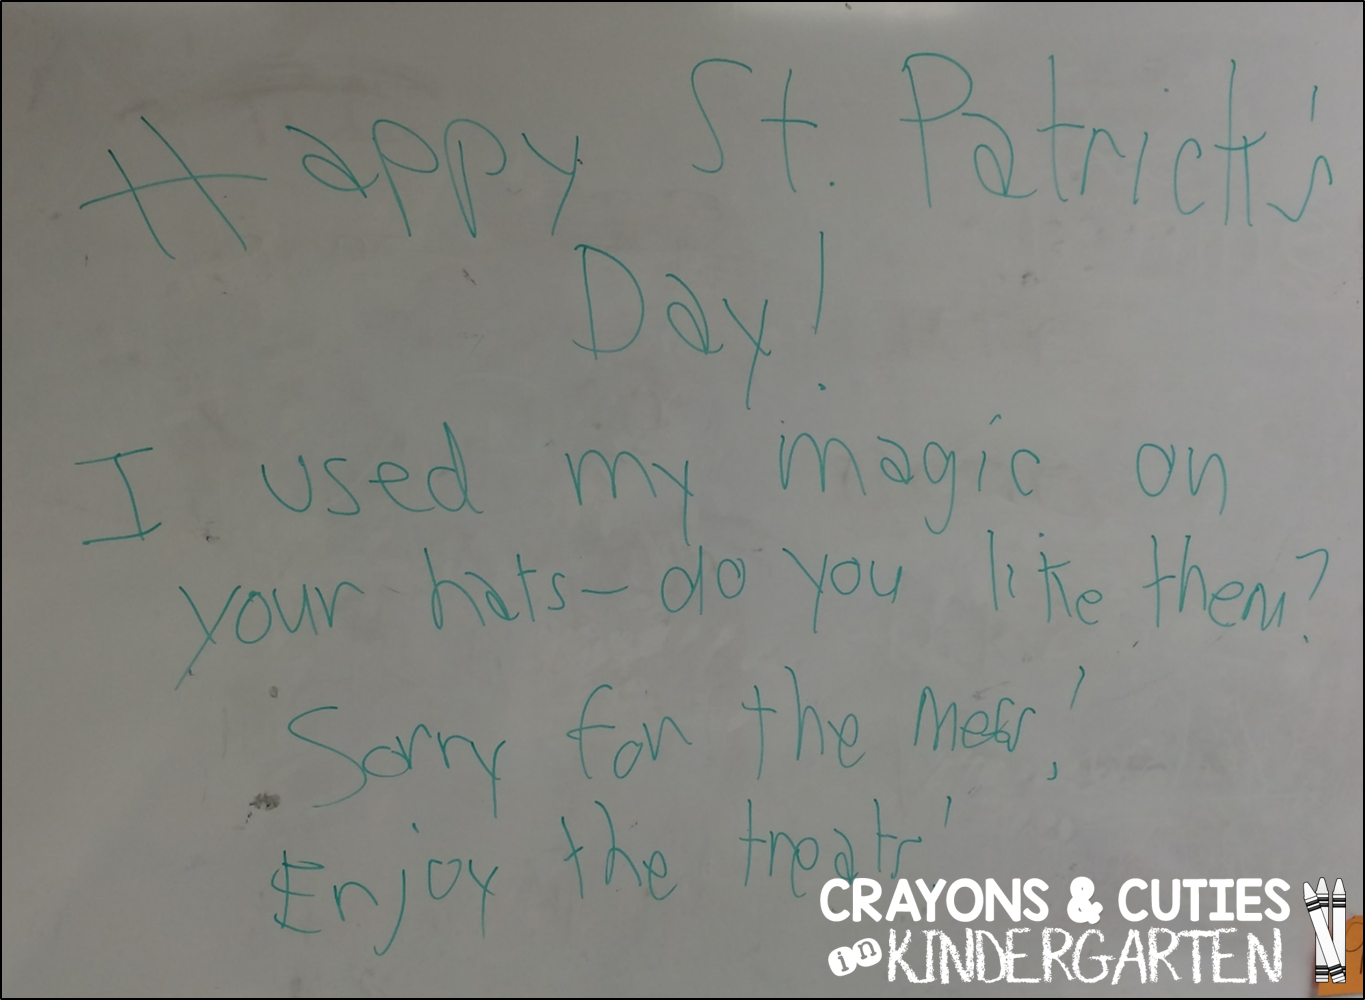 Happy St. Patrick's
Day!
I used my magic on
your hats- do you like them?
Sorry for the mess!
Enjoy the treats!
CRAYONS & CUTIES
in KINDERGARTEN